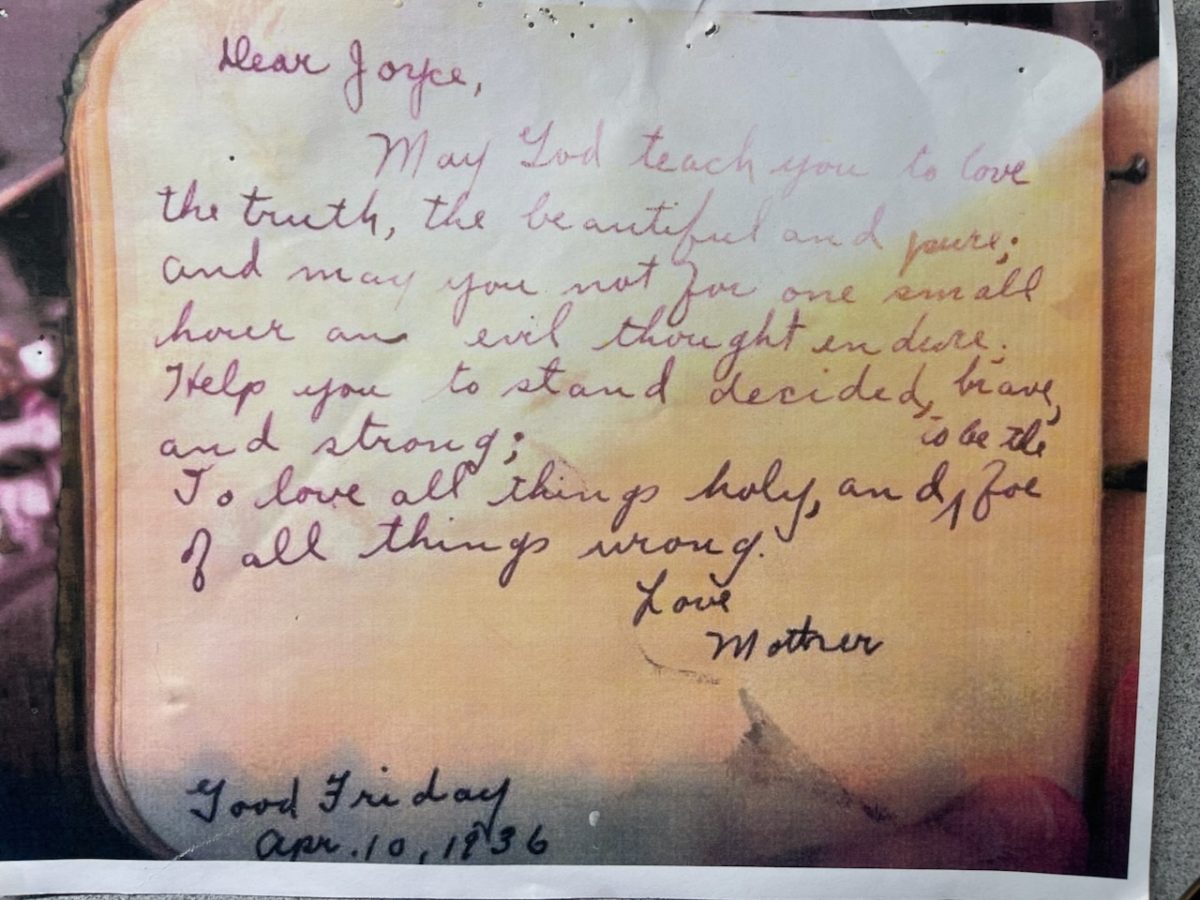 Dear Joyce,
May God teach you to love
the truth, the beautiful and pure;
and may you not for one small
hour an evil thought endure.
Help you to stand decided, brave,
and strong;
To love all things holy, and to be the foe
of all things wrong.
Love
Mother
Good Friday
Apr. 10, 1936